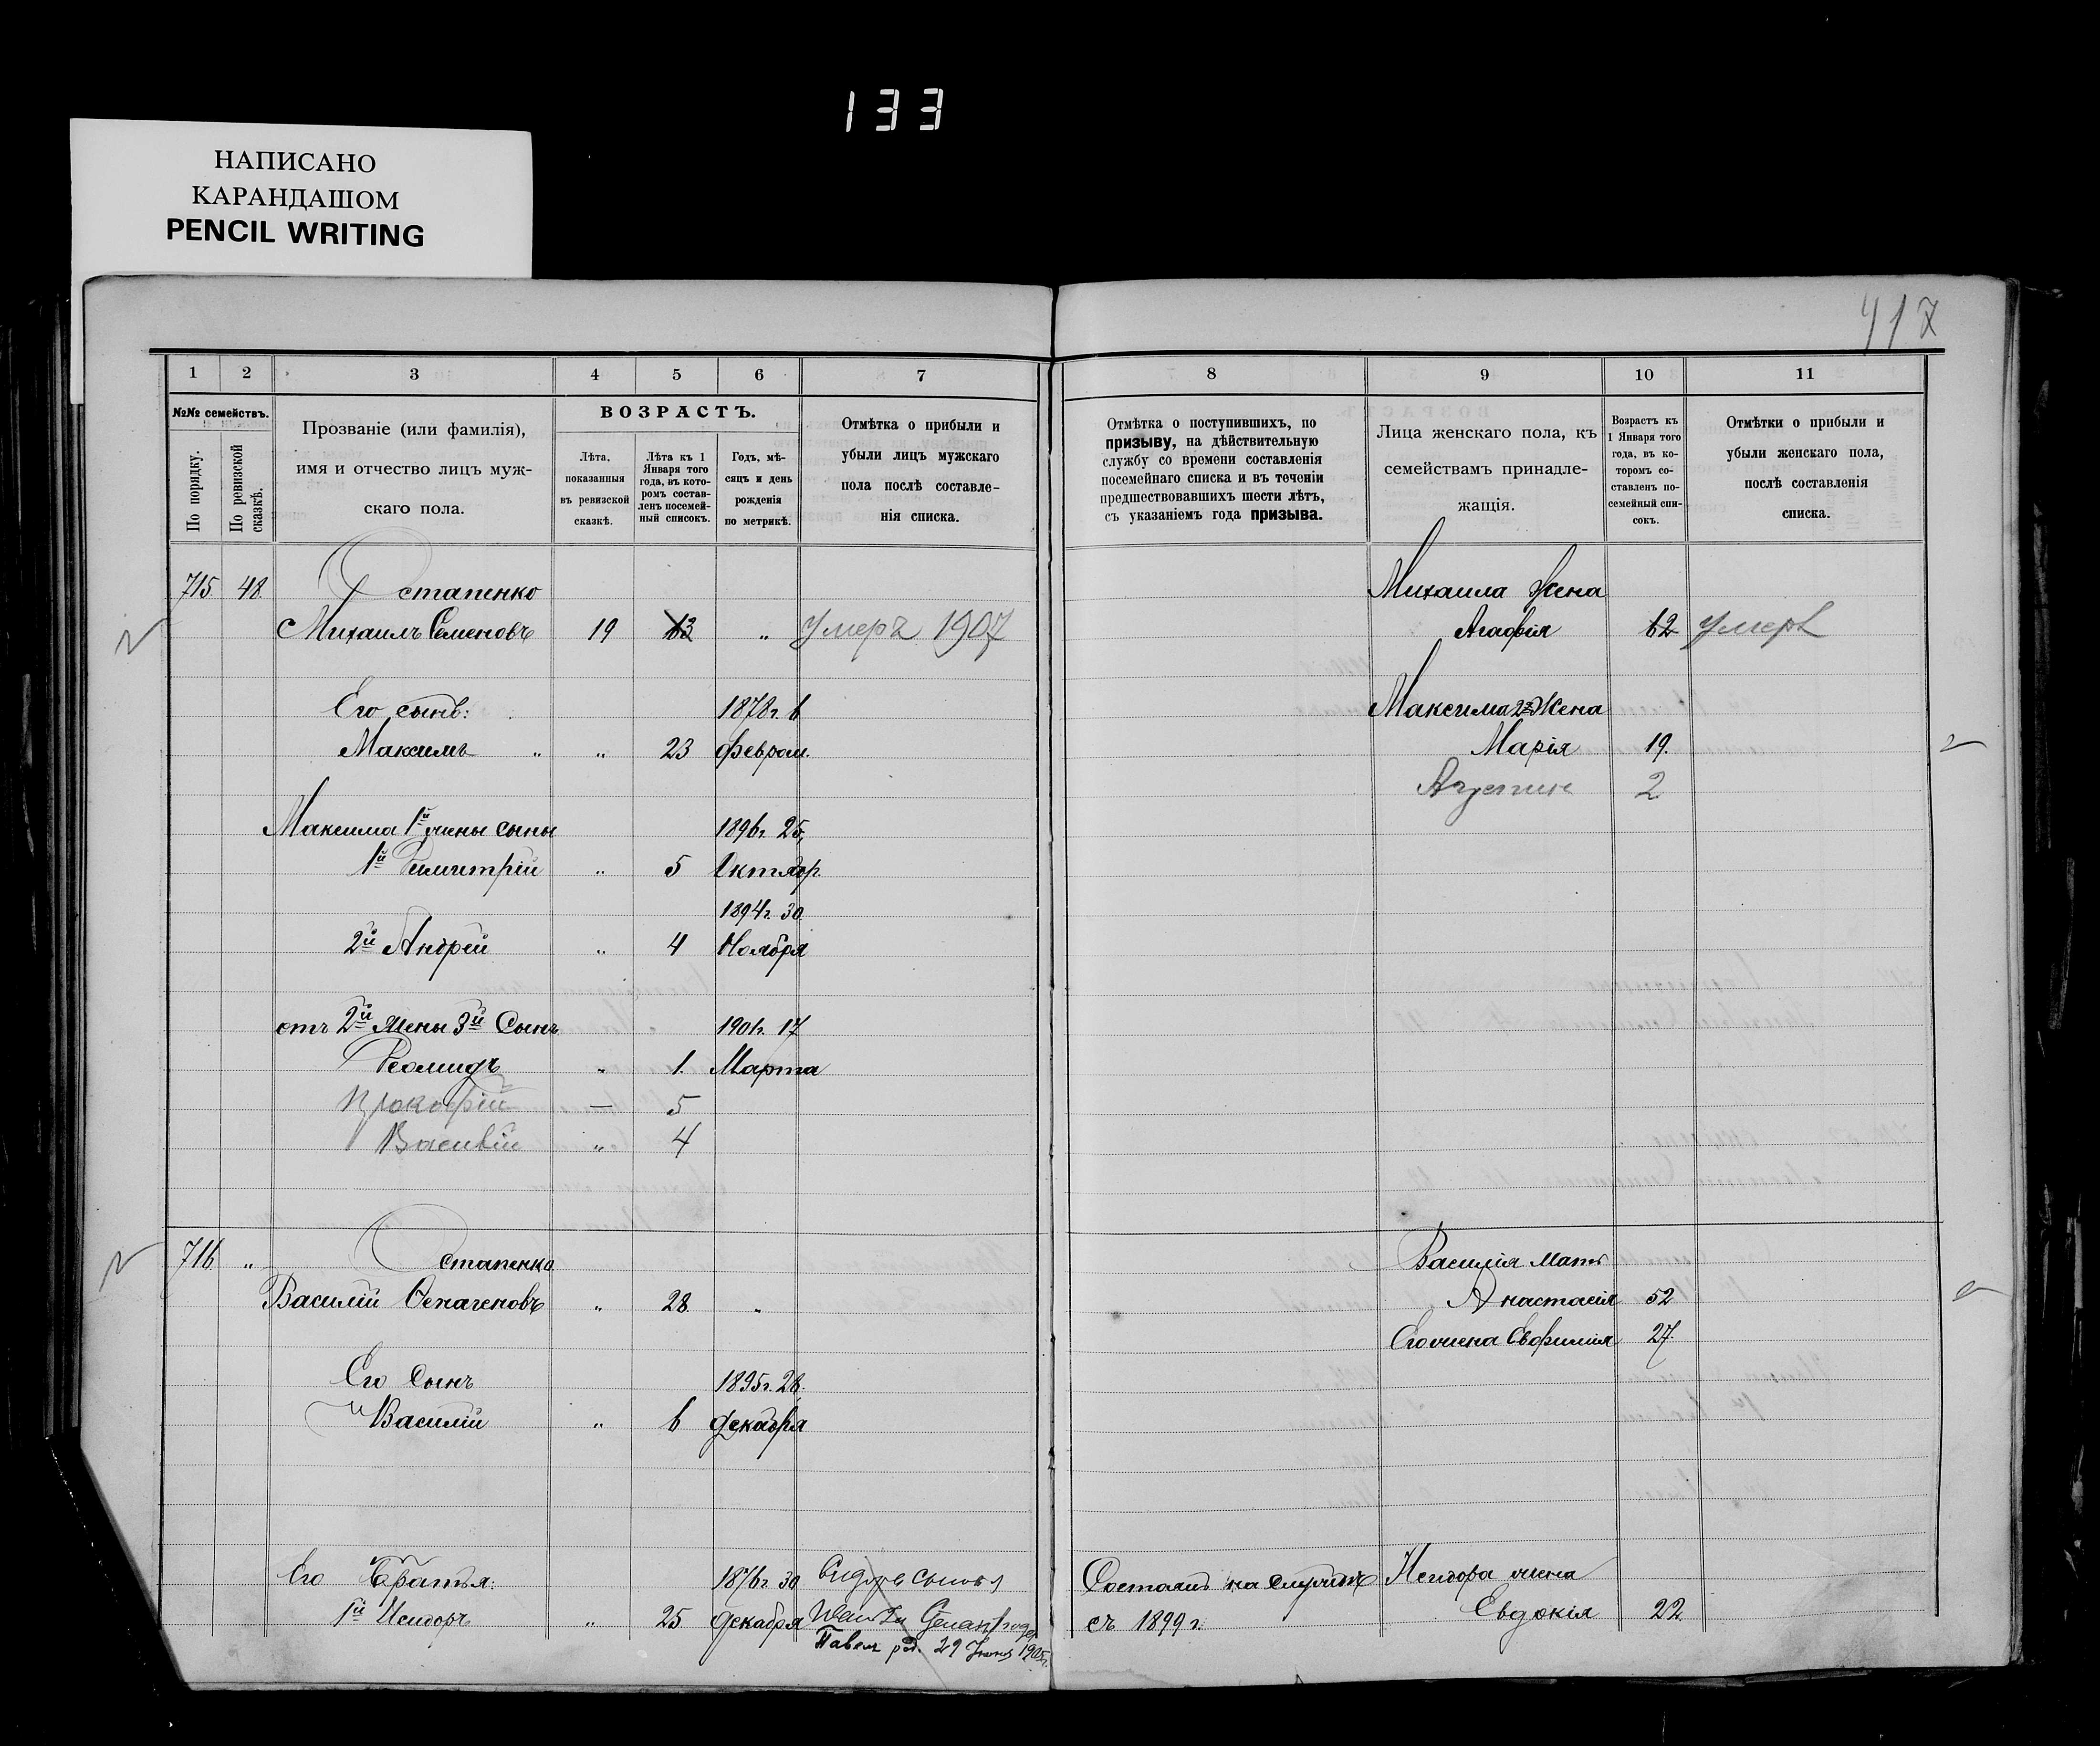 133
НАПИСАНО
КАРАНДАШОМ
PENCIL WRITING
417
1 2 3 4 5 6 7
№№ семействъ.
По порядку.
По ревизской сказкѣ.
Прозваніе (или фамилія),
имя и отчество лицъ муж-
скаго пола.
ВОЗРАСТЪ.
Лѣта,
показанныя
въ ревизской
сказкѣ.
Лѣта къ 1
Января того
года, въ кото-
ромъ состав-
ленъ посемей-
ный списокъ.
Годъ, мѣ-
сяцъ и день
рожденія
по метрикѣ.
Отмѣтка о прибыли и
убыли лицъ мужскаго
пола послѣ составле-
нія списка.
715 48 Остапенко
Михаилъ Семеновъ 19 63 „ умеръ 1907
Его сынъ: 1878г. 6
Максимъ „ „ 23 феврал.
Максима 1й жены сыны 1896г. 25,
1й Димитрій „ 5 Октябр.
1894г. 30
2й Андрей „ 4 Ноября
отъ 2й Жены 3й Сынъ 1901г. 17
„ 1. Марта
Прокофій — 5
Василій „ 4
716 „ Остапенко
Василій „ 28 „
Его Сынъ 1895г. 28.
Василій „ 6 декабря
Его Братья: 1876г. 30 сыновья
1й Исидоръ „ 25 декабря
Павелъ род. 29 1905г.
8 9 10 11
Отмѣтка о поступившихъ, по
призыву, на дѣйствительную
службу со времени составленія
посемейнаго списка и въ теченіи
предшествовавшихъ шести лѣтъ,
съ указаніемъ года призыва.
Лица женскаго пола, къ
семействамъ принадле-
жащія.
Возрастъ къ
1 Января того
года, въ ко-
торомъ со-
ставленъ по-
семейный спи-
сокъ.
Отмѣтки о прибыли и
убыли женскаго пола,
послѣ составленія
списка.
Михаила Жена
Агафія 62 умерла
Максима 2я Жена
Марія 19.
2
Василія Мать
Анастасія 52
Его жена Евфимія 27.
Состоитъ на службѣ Исидора жена
съ 1899 г. Евдокія 22